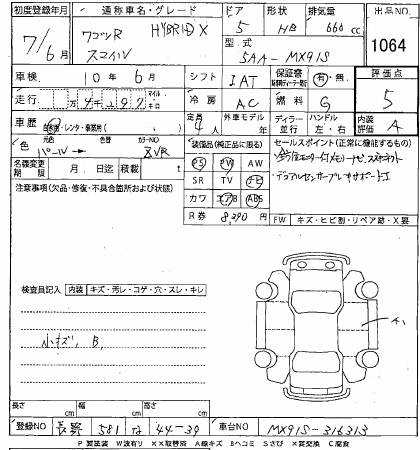 初度登録年月 通称車名・グレード ドア 形状 排気量 出品NO
7/6月 ワゴンR HYBRID X 5 HB 660cc 1064
スマイル 型式 5AA-MX91S
車検 10年 6月 シフト IAT 保証書 有・無 評価点
走行 マイル キロ 冷房 AC 燃料 G 5
車歴 自家用・レンタ・事業用 定員 4人 外車モデル ディーラー 並行 ハンドル 左・右 内装評価 A
色 元色 パール 色替 カラーNO ZVR 装備品(純正品に限る) セールスポイント(正常に機能するもの)
名義変更期限 月 日迄 積載 t PS PW AW
注意事項(欠品・修復・不具合箇所及び状態) SR TV ナビ デュアルセンサーブレーキサポートII
カワ エアB ABS
R券 8,290円 FW キズ・ヒビ割・リペア跡・X要
検査員記入 内装 キズ・汚レ・コゲ・穴・スレ・キレ
小キズ, B,
長さ cm 幅 cm 高さ cm
登録NO 長野 581 な 44-39 車台NO MX91S-316313
P要塗装 W波有り XX取替済 A線キズ Bヘコミ Sさび X要交換 C腐食